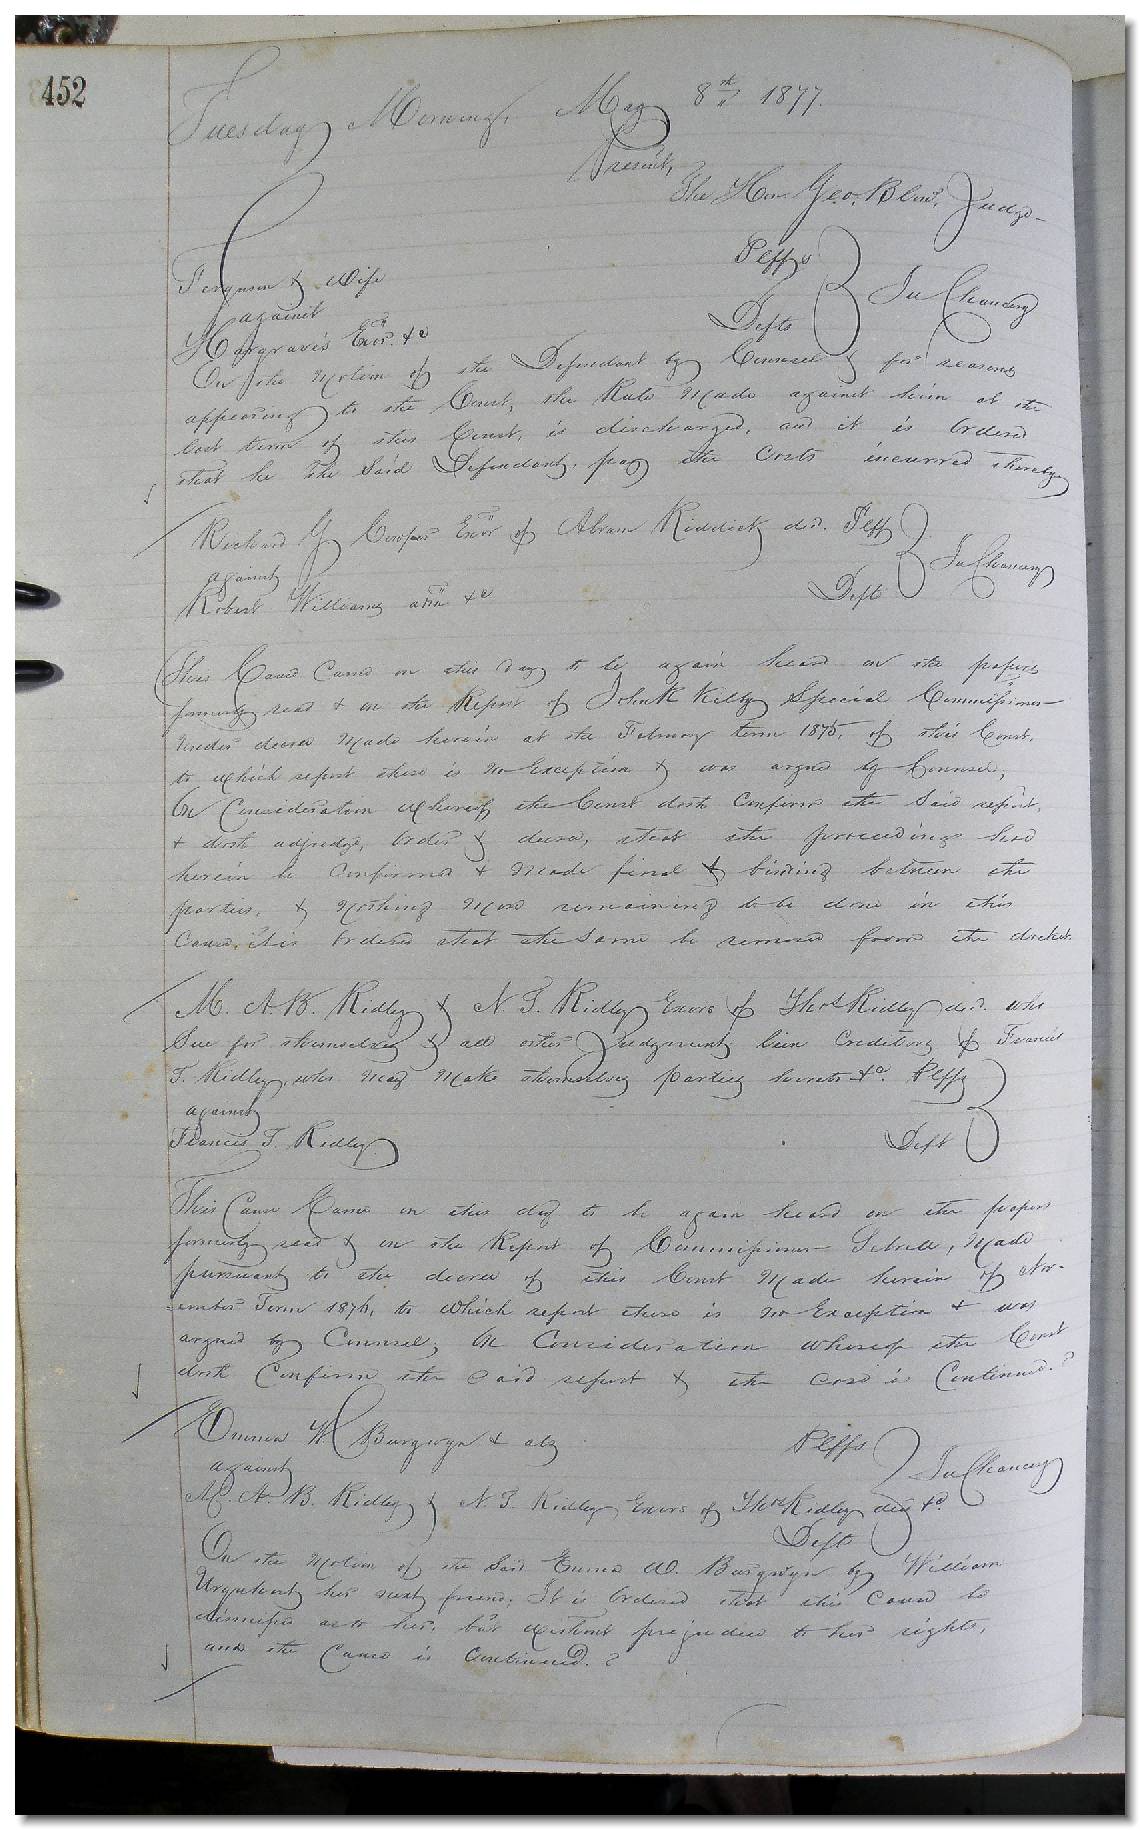 452
Tuesday Morning, May 8th 1877.
Present,
The Hon Geo. Blow, Judge
Ferguson & Wife Plffs
against In Chancery
Hargraves Exor. &c Defts
On the Motion of the Defendant by Counsel & for reasons
appearing to the Court, the Rule Made against him at the
last term of this Court, is discharged, and it is Ordered
that he the Said Defendant, pay the Costs incurred thereby
Richard G Cowper Exor of Abram Riddick decd. Plff
against In Chancery
Robert Williams admr &c Deft
This Cause Came on this day to be again heard on the papers
formerly read & on the Report of John R Kilby Special Commissioner
Under decree Made herein at the February term 1875, of this Court,
to which report there is no Exception & was argued by Counsel,
On Consideration Whereof the Court doth Confirm the Said report,
& doth adjudge, Order & decree, that the proceedings had
herein be Confirmed & Made final & binding between the
parties, & Nothing More remaining to be done in this
Cause, it is Ordered that the Same be removed from the docket.
M. A. B. Ridley & N. T. Ridley Exors of Thos Ridley decd. who
Sue for themselves & all other Judgment lien Creditors of Francis
T. Ridley, who May Make themselves parties hereto &c. Plffs
against
Francis T. Ridley Deft
This Cause Came on this day to be again heard on the papers
formerly read & on the Report of Commissioner Made
pursuant to the decree of this Court Made herein of Nov-
ember Term 1876, to which report there is no Exception & was
argued by Counsel; On Consideration whereof the Court
doth Confirm the Said report & the case is Continued.
Emma W Burgwyn & als Plffs
against In Chancery
M. A. B. Ridley & N. T. Ridley Exors of Thos Ridley decd &c.
Defts
On the Motion of the Said Emma W. Burgwyn by William
Urquhart her next friend; It is Ordered that this Cause be
dismissed as to her, but without prejudice to her rights,
and the Cause is Continued.